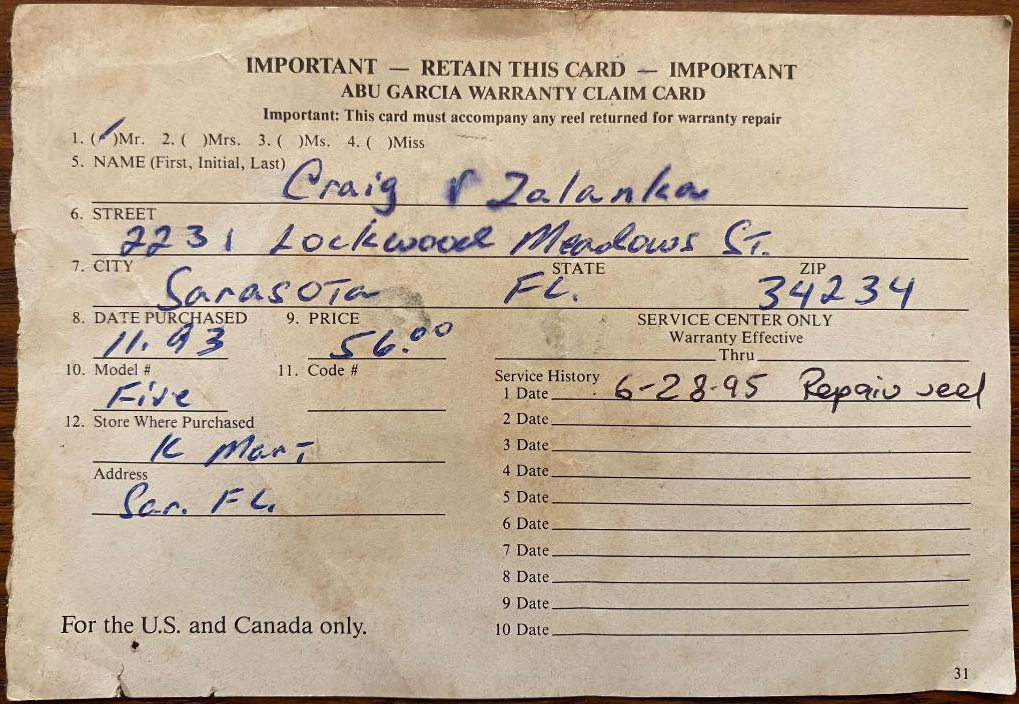 IMPORTANT — RETAIN THIS CARD — IMPORTANT
ABU GARCIA WARRANTY CLAIM CARD
Important: This card must accompany any reel returned for warranty repair
1. (✓)Mr. 2. ( )Mrs. 3. ( )Ms. 4. ( )Miss
5. NAME (First, Initial, Last) Craig Zalanka
6. STREET
2231 Lockwood Meadows ST.
7. CITY STATE ZIP
Sarasota FL. 34234
8. DATE PURCHASED 9. PRICE
11.93 56.00
10. Model # 11. Code #
Five
12. Store Where Purchased
K Mart
Address
Sar. FL.
For the U.S. and Canada only.
SERVICE CENTER ONLY
Warranty Effective
Thru
Service History
1 Date 6-28-95 Repair reel
2 Date
3 Date
4 Date
5 Date
6 Date
7 Date
8 Date
9 Date
10 Date
31